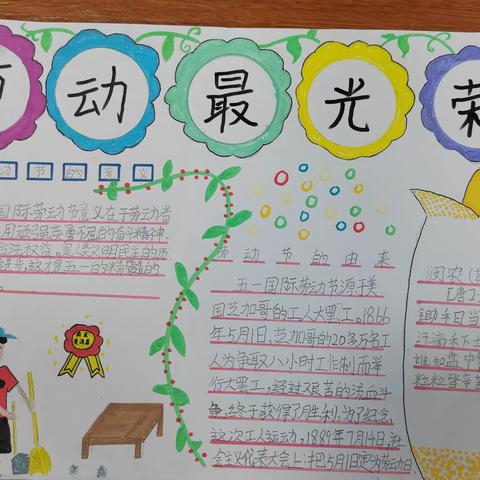 动最光荣
动节的意义
国际劳动节意义在于劳动者
用顽强英勇不屈的奋斗精神
劳动节的由来
五一国际劳动节源于美
国芝加哥的工人大罢工。1866
年5月1日,芝加哥的20多万名工
人为争取八小时工作制而举
行大罢工,经过艰苦的流血斗
争,终于获得了胜利。为了纪念
这次工人运动,1889年7月14日,社
会主义代表大会上:把5月1日定为劳动日
悯农
锄禾日当
汗滴禾下土
谁知盘中
粒粒皆辛